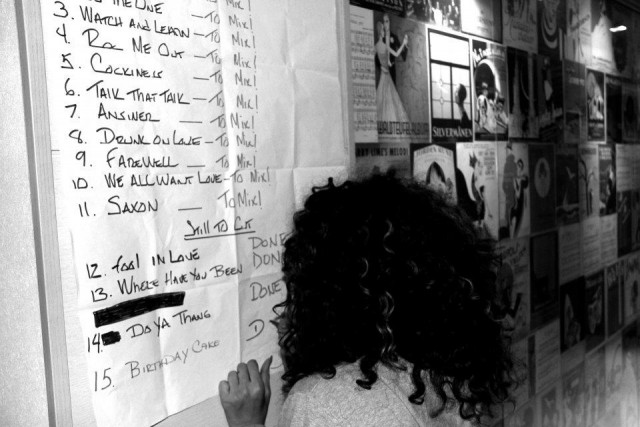 THE ONE — TO MIX!
3. WATCH AND LEARN — TO MIX!
4. ROC ME OUT — TO MIX!
5. COCKINESS — TO MIX!
6. TALK THAT TALK — TO MIX!
7. ANSWER — TO MIX!
8. DRUNK ON LOVE — TO MIX!
9. FAREWELL — TO MIX!
10. WE ALL WANT LOVE — TO MIX!
11. SAXON — TO MIX!
STILL TO CUT
12. FOOL IN LOVE DONE
13. WHERE HAVE YOU BEEN DONE
DONE
14. DO YA THANG D
15. BIRTHDAY CAKE
SILVERMÅNEN